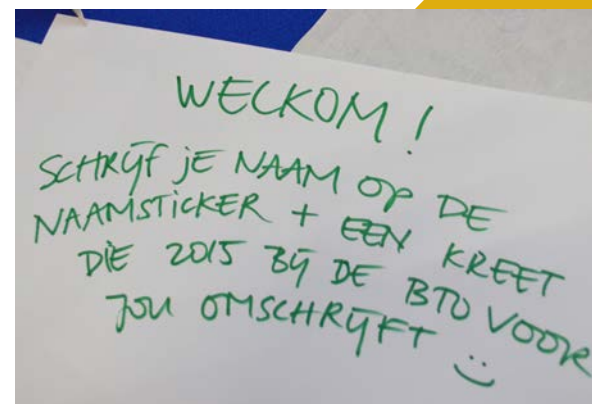 WELKOM!
SCHRIJF jE NAAM OP DE
NAAMSTICKER + EEN KREET
DIE 2015 BIJ DE BTO VOOR
JOU OMSCHRIJFT :)